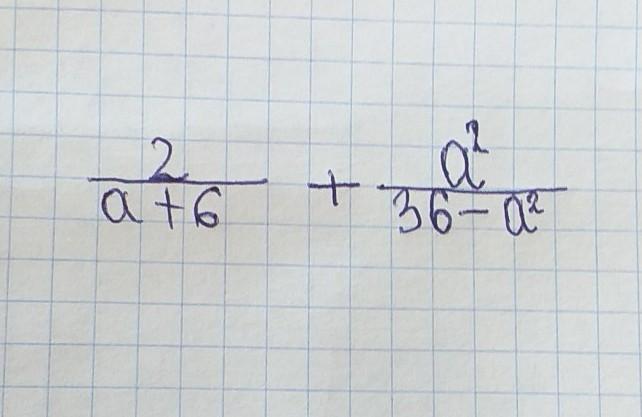 2/(a+6) + a²/(36-a²)